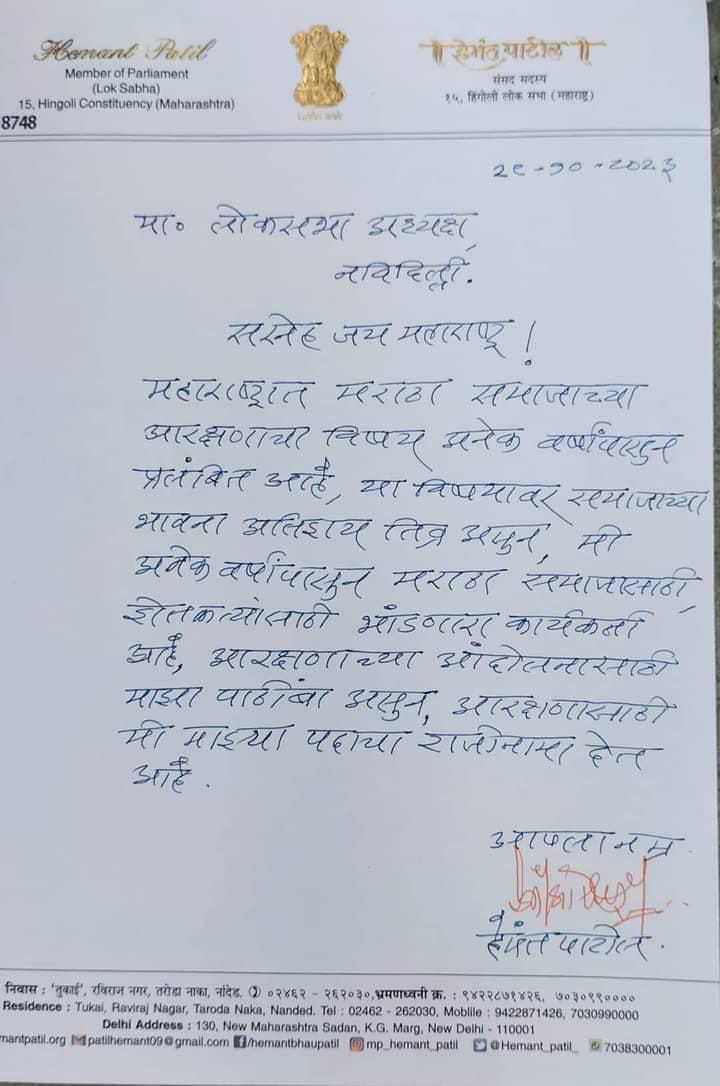 Hemant Patil
Member of Parliament
(Lok Sabha)
15, Hingoli Constituency (Maharashtra)
8748
॥ हेमंत पाटील ॥
संसद सदस्य
१५, हिंगोली लोक सभा (महाराष्ट्र)
२९-१०-२०२३
मा० लोकसभा अध्यक्ष,
नविदिल्ली.
सस्नेह जय महाराष्ट्र!
महाराष्ट्रात मराठा समाजाच्या
आरक्षणाचा विषय अनेक वर्षांपासुन
प्रलंबित आहे, या विषयावर समाजाच्या
भावना अतिशय तिव्र असुन, मी
अनेक वर्षांपासुन मराठा समाजासाठी,
शेतकऱ्यांसाठी भांडणारा कार्यकर्ता
आहे, आरक्षणाच्या आंदोलनासाठी
माझा पाठींबा असुन, आरक्षणासाठी
मी माझ्या पदाचा राजीनामा देत
आहे.
आपला नम्र
हेमंत पाटील.
निवास : 'तुकाई', रविराज नगर, तरोडा नाका, नांदेड. ✆ ०२४६२ - २६२०३०, भ्रमणध्वनी क्र. : ९४२२८७१४२६, ७०३०९९००००
Residence : Tukai, Raviraj Nagar, Taroda Naka, Nanded. Tel : 02462 - 262030, Moblile : 9422871426, 7030990000
Delhi Address : 130, New Maharashtra Sadan, K.G. Marg, New Delhi - 110001
mantpatil.org patilhemant09@gmail.com /hemantbhaupatil mp_hemant_patil @Hemant_patil_ 7038300001